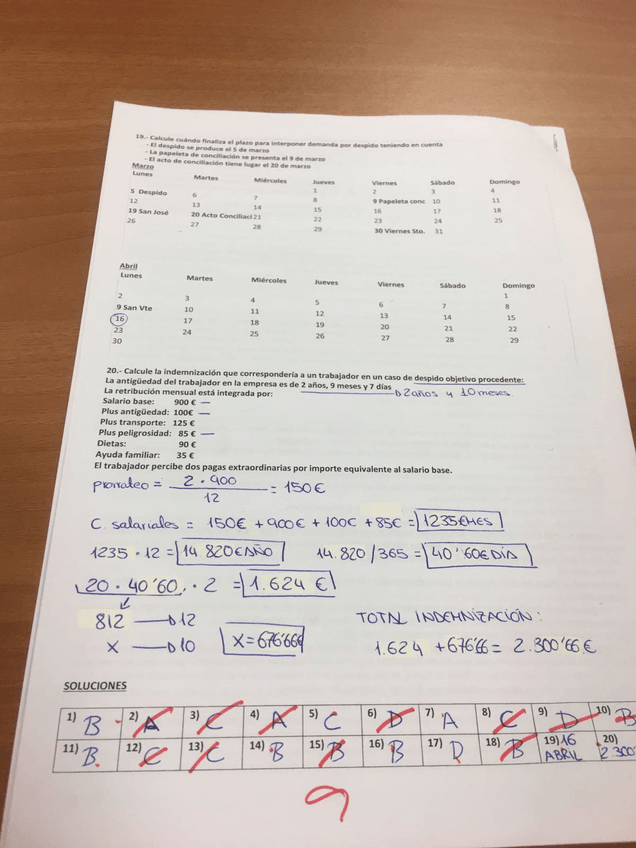 19.- Calcule cuándo finaliza el plazo para interponer demanda por despido teniendo en cuenta
- El despido se produce el 5 de marzo
- La papeleta de conciliación se presenta el 9 de marzo
- El acto de conciliación tiene lugar el 20 de marzo
Marzo
Lunes Martes Miércoles Jueves Viernes Sábado Domingo
1 2 3 4
5 Despido 6 7 8 9 Papeleta conc 10 11
12 13 14 15 16 17 18
19 San José 20 Acto Conciliaci 21 22 23 24 25
26 27 28 29 30 Viernes Sto. 31
Abril
Lunes Martes Miércoles Jueves Viernes Sábado Domingo
1
2 3 4 5 6 7 8
9 San Vte 10 11 12 13 14 15
16 17 18 19 20 21 22
23 24 25 26 27 28 29
30
20.- Calcule la indemnización que correspondería a un trabajador en un caso de despido objetivo procedente:
La antigüedad del trabajador en la empresa es de 2 años, 9 meses y 7 días
La retribución mensual está integrada por: 2 años y 10 meses.
Salario base: 900 € —
Plus antigüedad: 100€ —
Plus transporte: 125 €
Plus peligrosidad: 85 € —
Dietas: 90 €
Ayuda familiar: 35 €
El trabajador percibe dos pagas extraordinarias por importe equivalente al salario base.
prorrateo = 2 · 900 / 12 = 150€
C. salariales = 150€ + 900€ + 100€ + 85€ = 1235€MES
1235 · 12 = 14.820€AÑO 14.820/365 = 40'60€DÍA
20 · 40'60 · 2 = 1.624 €
812 → 12
x → 10 X=676'66€
TOTAL INDEMNIZACIÓN:
1.624 + 676'66 = 2.300'66 €
SOLUCIONES
1) B 2) A 3) C 4) A 5) C 6) D 7) A 8) C 9) D 10) B
11) B. 12) C 13) C 14) B 15) B 16) B 17) D 18) B 19) 16 ABRIL 20) 2.300
9